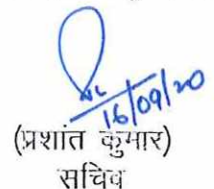 16/09/20
(प्रशांत कुमार)
सचिव